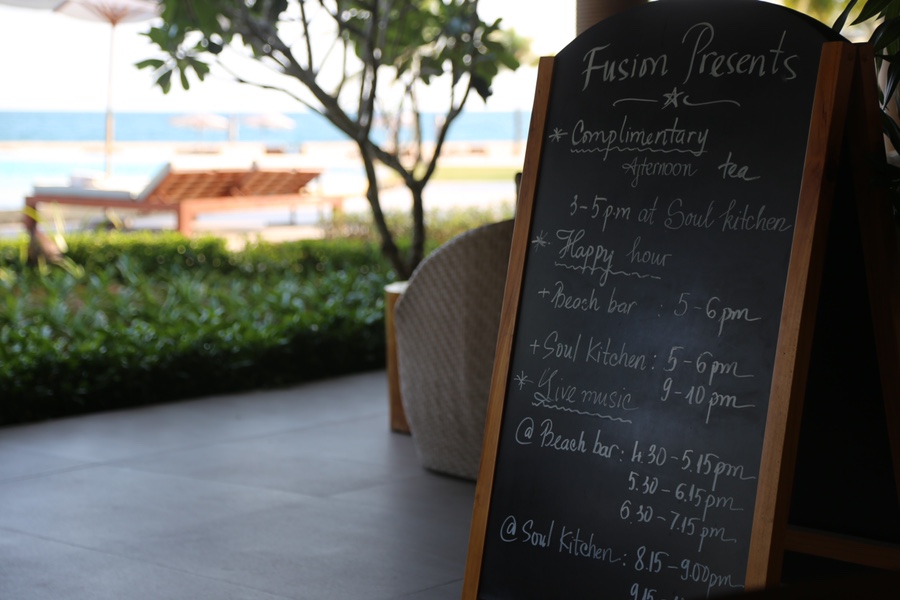 Fusion Presents
* Complimentary
Afternoon tea
3-5p.m at Soul kitchen
* Happy hour
+Beach bar : 5-6pm
+Soul Kitchen: 5-6pm
9-10pm
* Live music
@ Beach bar: 4.30-5.15pm
5.30-6.15pm
6.30-7.15pm
@Soul Kitchen: 8.15-9.00pm